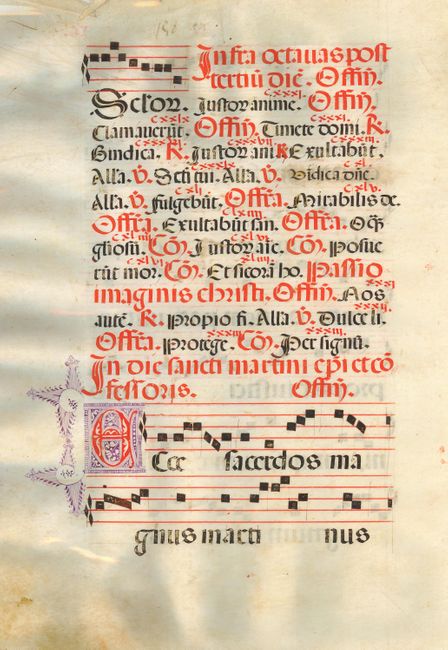 Infra octavas post
tertiū diē. Offm̄.
Sc̄lor. Justor anime. Offm̄.
cxxxi.
Clamaverūt. Offm̄. Timete domi. R.
Vindica. R. Justor ani R Exultabūt.
Alla. V. Scti tui. Alla. V. Vidica dn̄e.
cxli. cxlv.
Alla. V. Fulgebūt. Offra. Mirabilis de.
Offra. Exultabūt san. Offra. Oēs
gloriosū. Cōm. Justor aīe. Cōm. Posue
cxlvi.
rūt mor. Cōm. Et si corā ho. Passio
imaginis christi. Offm̄. Nos
autē. R. Propio fi. Alla. V. Dulce li.
Offra. Protege. Cōm. Per signū.
In die sancti martini ep̄i et cō
fessoris. Offm̄.
Ecce sacerdos ma
gnus marti nus